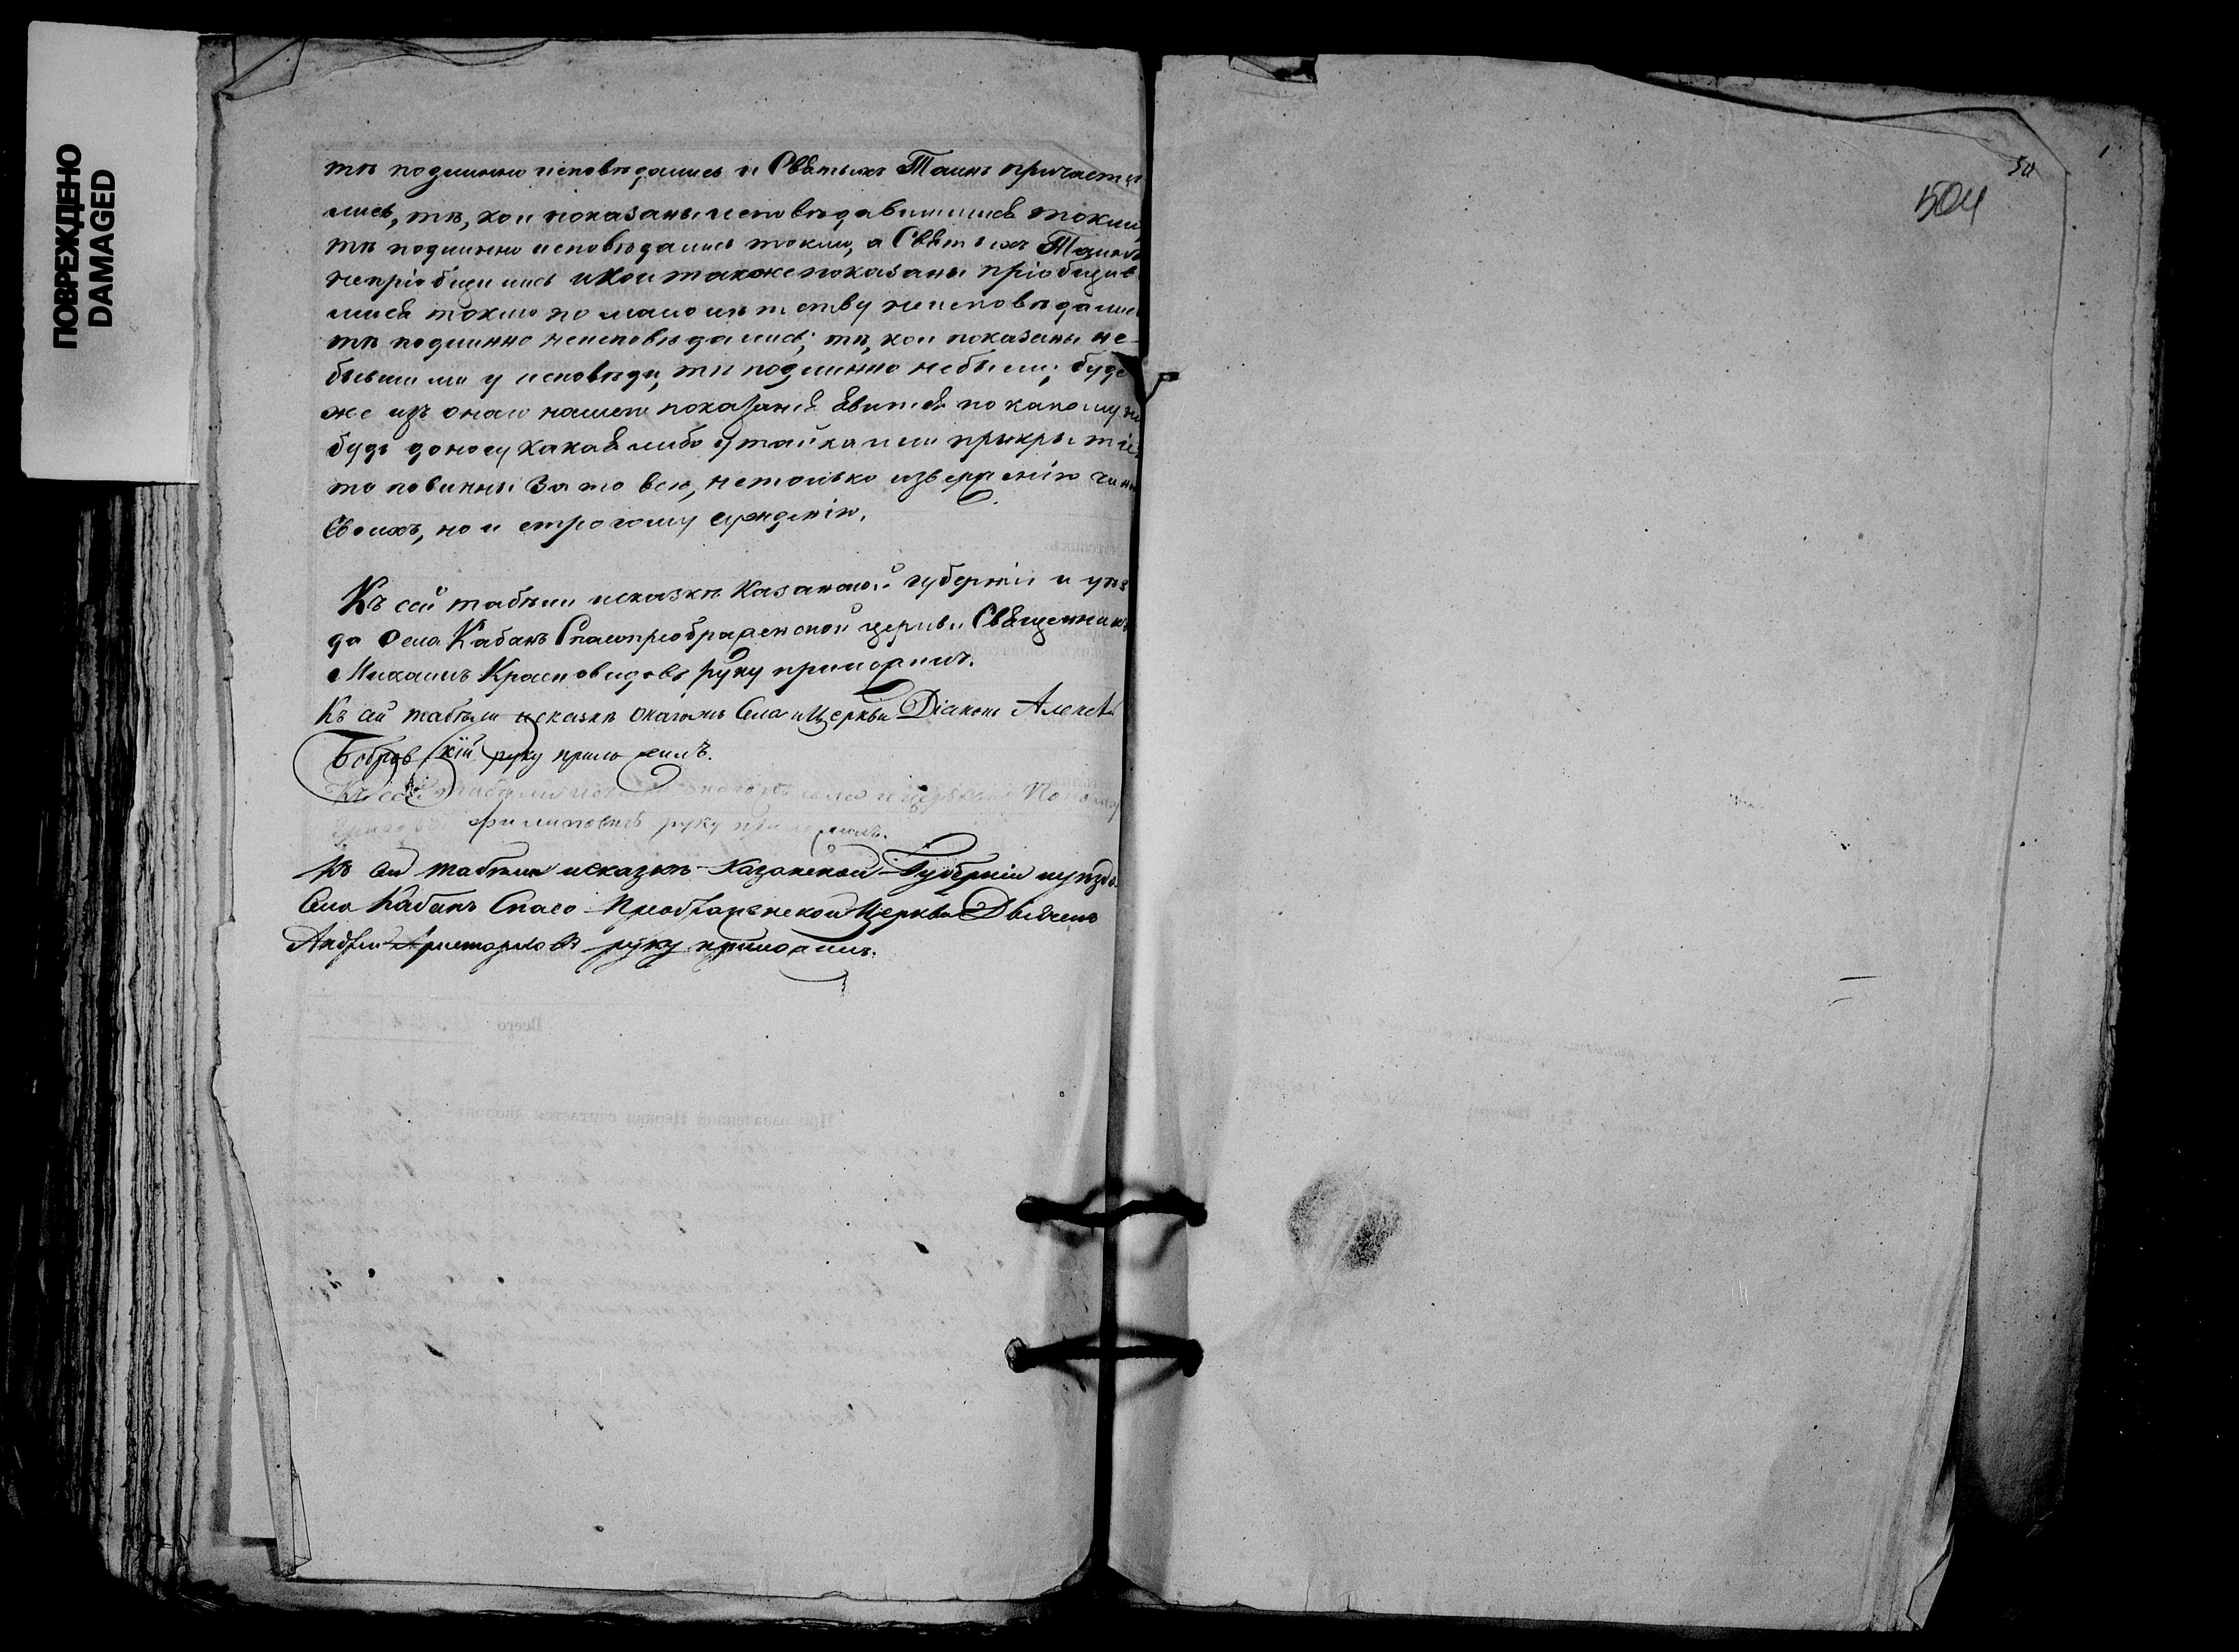 ПОВРЕЖДЕНО
DAMAGED
тѣ подлинно исповѣдались и Святыхъ Таинъ причасти
лись, тѣ, кои показаны исповѣдавшимися токмо,
тѣ подлинно исповѣдались токмо, а Святыхъ Таинъ
непріобщились и кои также показаны пріобщив
мися токмо по малолѣтству неисповѣдались
тѣ подлинно неисповѣдались; тѣ, кои показаны не-
бывшими у исповѣди, тѣ подлинно небыли; буде
же изъ онаго нашего показанія явится по какому ни
будь доносу какая либо утайка или прикрытіе
то повинны за то все, нетолько изверженію чин
Своихъ, но и строгому сужденію.
Къ сей табѣли исказкѣ Казанской губерніи и уѣз
да Села Кабанъ Спасопреображенской церкви Священникъ
Михаилъ Красновидовъ руку приложилъ.
Къ сей табѣли исказкѣ онагожъ Села и Церкви Діаконъ Алексѣй
Бобровскій руку приложилъ.
Къ сей табѣли исказкѣ онагожъ села и церкви Понома
Филиповъ руку приложилъ.
Къ сей табѣли исказкѣ Казанской Губерніи иуѣзда
Села Кабанъ Спасо Преображенской Церкви Дьячекъ
Андрей руку приложилъ.
Всего
При означенной Церкви считается дворовъ
50
504